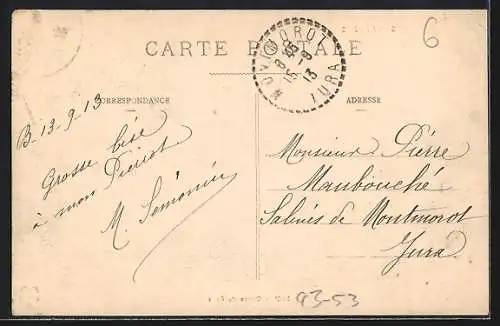 CARTE POSTALE
6
MONTMOROT
JURA
8 45
15 - 8
13
CORRESPONDANCE
ADRESSE
B- 13-9-13
Grosse bise
à mon Pierrot
M. Semonin
Monsieur Pierre
Maubouché
Salines de Montmorot
Jura
93-53